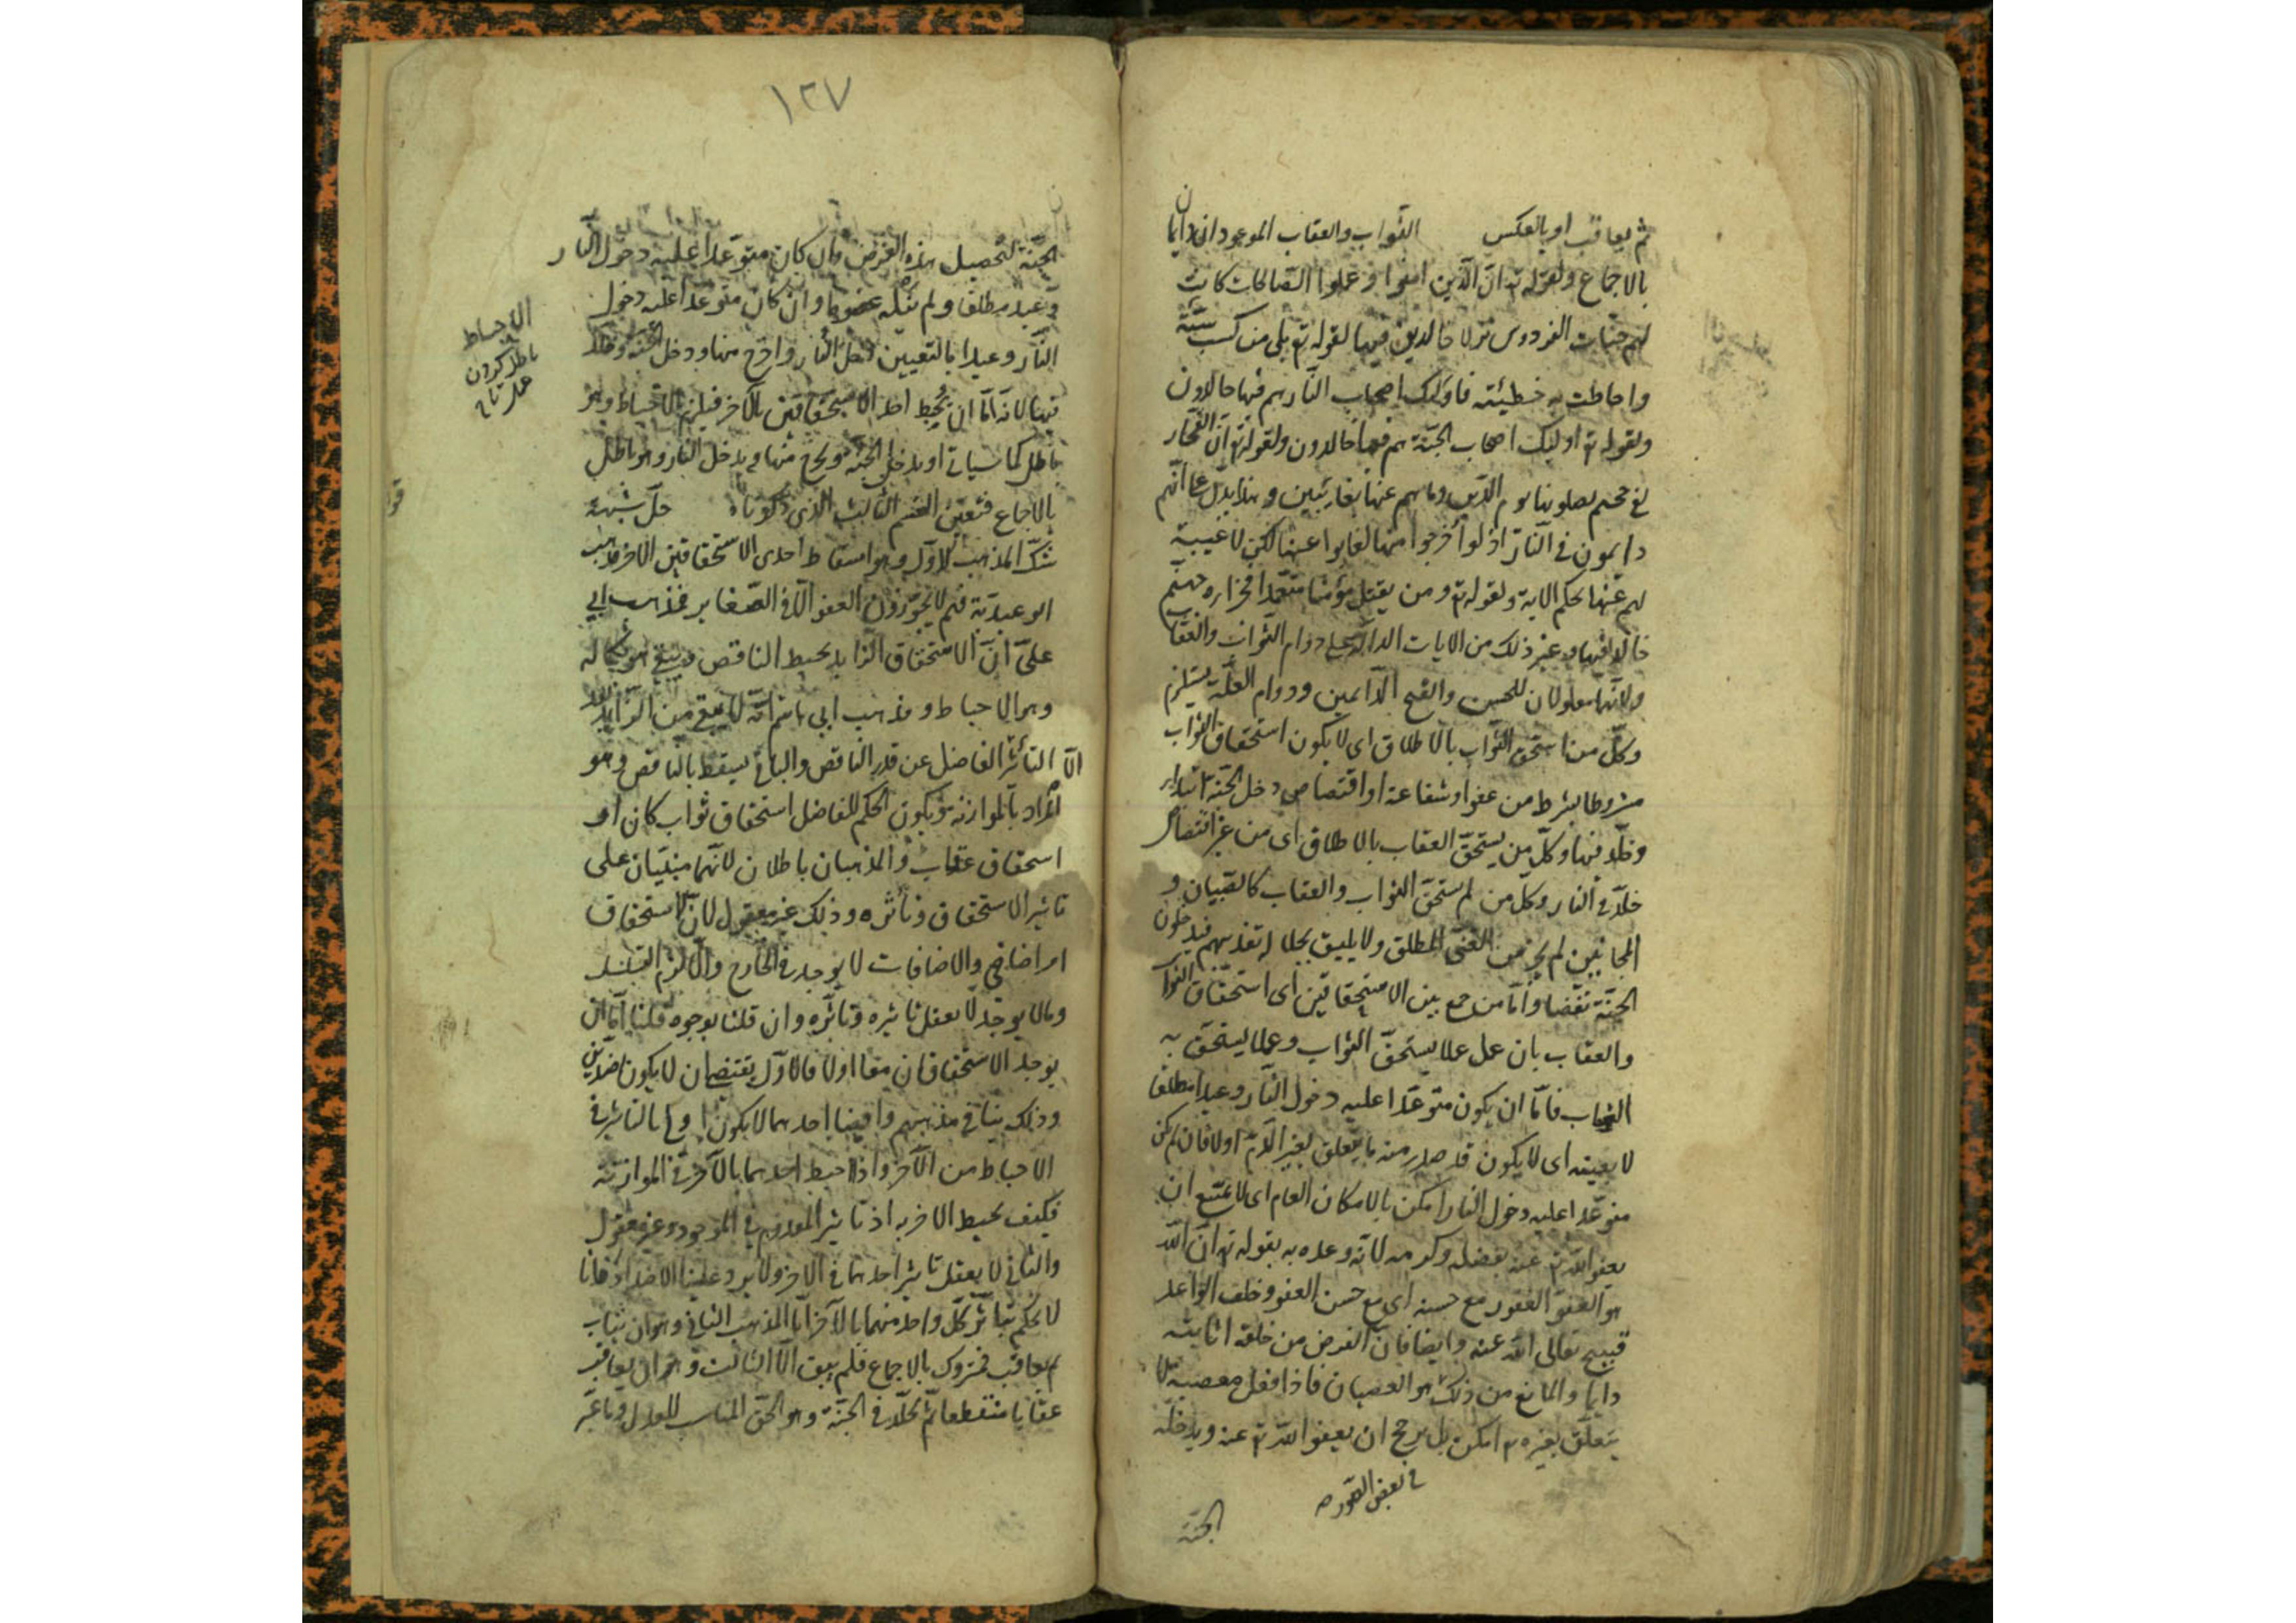 ثم يعاقب او بالعكس الثواب والعقاب الموعودان دايمان
بالاجماع ولقوله تع ان الذين امنوا وعملوا الصالحات كانت
لهم جنات الفردوس نزلا خالدين فيها لقوله تع بلى من كسب سيئة
واحاطت به خطيئته فاولئك اصحاب النار هم فيها خالدون
ولقوله تع اولئك اصحاب الجنة هم فيها خالدون ولقوله تع ان الفجار
لفي جحيم يصلونها يوم الدين وما هم عنها بغائبين وهذا يدل على انهم
دايمون في النار اذ لو أخرجوا منها لغابوا عنها لكن لا غيبة
لهم عنها بحكم الاية ولقوله تع ومن يقتل مؤمنا متعمدا فجزاؤه جهنم
خالدا فيها وغير ذلك من الايات الدالة على دوام الثواب والعقاب
ولانهما معلولان للحسن والقبح الدايمين ودوام العلة يستلزم
وكل من استحق الثواب بالاطلاق اى لا يكون استحقاق الثواب
مشروطا بشرط من عفو او شفاعة او اقتصاص دخل الجنة ابتداء
وخلد فيها وكل من يستحق العقاب بالاطلاق اى من غير اقتصاص
خلد في النار وكل من لم يستحق الثواب والعقاب كالصبيان و
المجانين لم يجز من الغنى المطلق ولا يليق بجلاله تعذيبهم فيدخلون
الجنة تفضلا واما من جمع بين الاستحقاقين اى استحقاق الثواب
والعقاب بان عمل عملا يستحق الثواب وعملا يستحق به
العقاب فاما ان يكون متوعدا عليه دخول النار وعيدا مطلقا
لا بعينه اى لا يكون قد صدر منه ما يتعلق بغير الله تع اولا فان لم يكن
متوعدا عليه دخول النار امكن بالامكان العام اى لا يمتنع ان
يعفو الله تع عنه بفضله وكرمه لانه وعده به بقوله تع ان الله
هو العفو الغفور مع حسنه اى مع حسن العفو وخلف الواعد
قبيح تعالى الله عنه وايضا فان الغرض من خلقه اثابته
دايما والمانع من ذلك هو العصيان فاذا فعل معصية لا
يتعلق بغيره تع امكن بل يرجح ان يعفو الله تع عنه ويدخله
في بعض الصور صح
الجنة
١٢٧
الجنة لتحصيل هذه الغرض وان كان متوعدا عليه دخول النار
وعيدا مطلقا ولم ينله عفوها وان كان متوعدا عليه دخول
النار وعيدا بالتعيين دخل النار واخرج منها ودخل الجنة وخلد
فيها لانه اما ان يحبط احد الاستحقاقين بالاخر فيلزم الاحباط وهو
باطل كما سياتى او يدخل الجنة ويخرج منها ويدخل النار وهو باطل
بالاجماع فتعين القسم الثالث الذى ذكرناه حل شبهة
شك المذهب الاول وهو اسقاط احدى الاستحقاقين الاخر مذهب
الوعيدية فهم لا يجوزون العفو الا في الصغاير فمذهب ابى
على ان الاستحقاق الزايد يحبط الناقص ويبقى هو بكماله
وهو الاحباط ومذهب ابى هاشم انه لا يبقى من الزايد
الا التأثير الفاضل عن قدر الناقص والباقى يسقط بالناقص وهو
المراد بالموازنة ويكون الحكم للفاضل استحقاق ثواب كان او
استحقاق عقاب والمذهبان باطلان لانهما مبنيان على
تاثير الاستحقاق وتأثره وذلك غير معقول لان الاستحقاق
امر اضافى والاضافات لا يوجد في الخارج والا لزم التسلسل
وما لا يوجد لا يعقل تاثيره وتاثره وان قلنا بوجوده قلنا اما ان
يوجد الاستحقاقان معا اولا فالاول يقتضى ان لا يكونا ضدين
وذلك ينافى مذهبهم وايضا احدهما لا يكون اولى بالتاثير في
الاحباط من الآخر واذا احبط احدهما بالآخر في الموازنة
فكيف يحبط الاخر به اذ تاثير المعدوم في الموجود غير معقول
والثانى لا يعقل تاثير احدهما في الاخر ولا يرد علينا الاضداد فانا
لا نحكم بتاثر كل واحد منهما بالآخر اما المذهب الثانى وهو ان يثاب
ثم يعاقب فمتروك بالاجماع فلم يبق الا الثالث وهو ان يعاقب
عقابا منقطعا ثم يخلد في الجنة وهو الحق المناسب للعدل وما عبر
الاحباط
باطل كردن